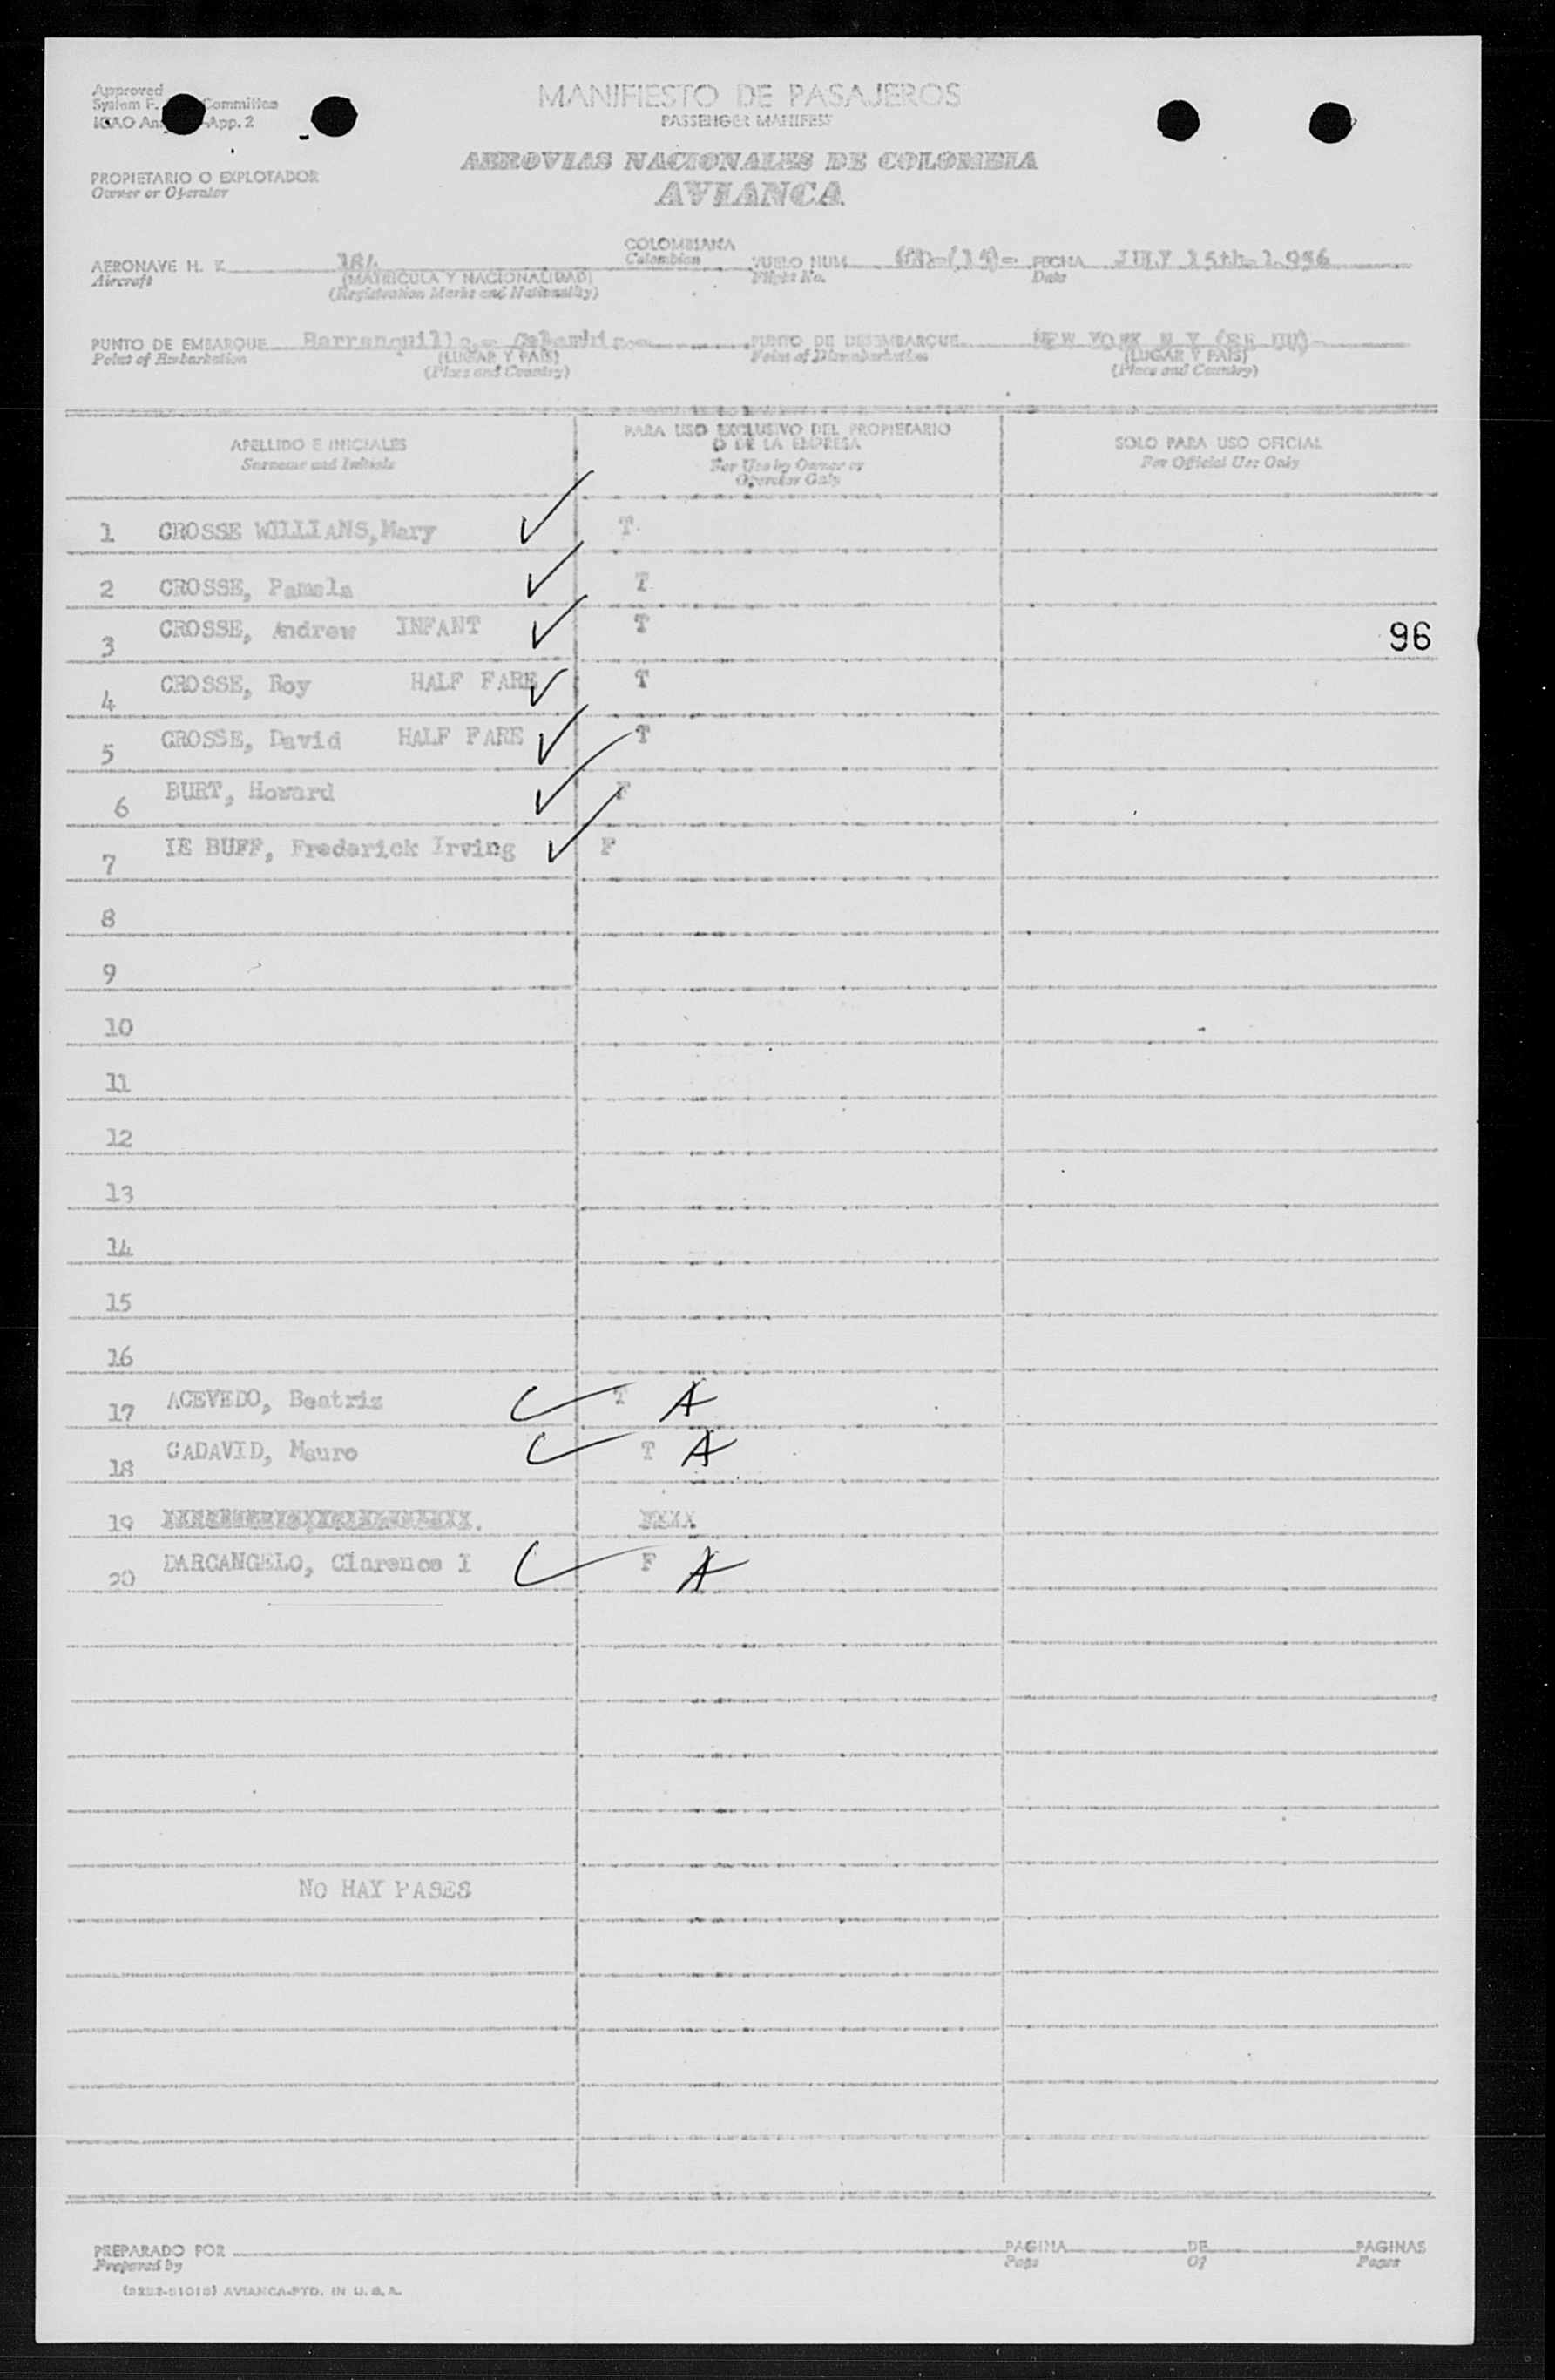 Approved
System F. Committee
ICAO An App. 2
MANIFIESTO DE PASAJEROS
PASSENGER MANIFEST
AEROVIAS NACIONALES DE COLOMBIA
AVIANCA
PROPIETARIO O EXPLOTADOR
Owner or Operator
AERONAVE H. K 184 COLOMBIANA VUELO NUM FECHA JULY 15th-1.956
Aircraft (MATRICULA Y NACIONALIDAD) Colombian Flight No. Date
(Registration Marks and Nationality)
PUNTO DE EMBARQUE Barranquilla.- Colombia.- PUNTO DE DESEMBARQUE NEW YORK N Y (EE UU)-
Point of Embarkation (LUGAR Y PAIS) Point of Disembarkation (LUGAR Y PAIS)
(Place and Country) (Place and Country)
APELLIDO E INICIALES PARA USO EXCLUSIVO DEL PROPIETARIO O DE LA EMPRESA SOLO PARA USO OFICIAL
Surname and Initials For Use by Owner or Operator Only For Official Use Only
1 CROSSE WILLIANS,Mary T.
2 CROSSE, Pamela T
3 CROSSE, Andrew INFANT T
96
4 CROSSE, Roy HALF FARE T
5 CROSSE, David HALF FARE T
6 BURT, Howard F
7 LE BUFF, Frederick Irving F
8
9
10
11
12
13
14
15
16
17 ACEVEDO, Beatriz T A
18 CADAVID, Mauro T A
19
20 DARCANGELO, Clarence I F A
NO HAY PASES
PREPARADO POR PAGINA DE PAGINAS
Prepared by Page Of Pages
AVIANCA-PTD. IN U. S. A.